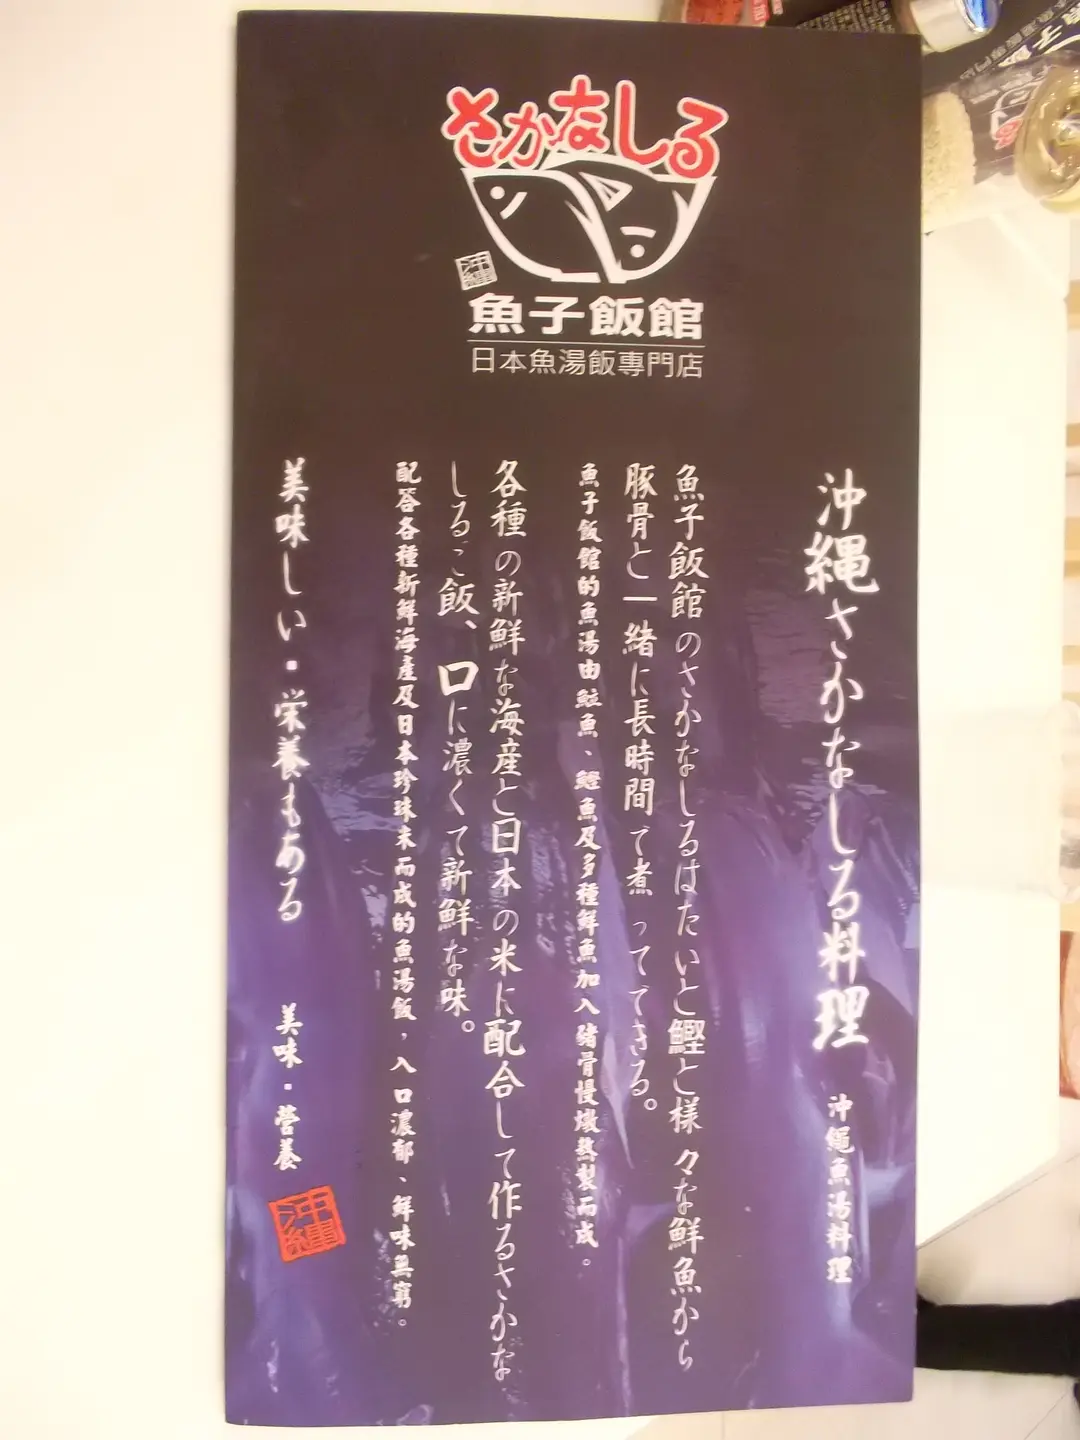 さかなしる
沖繩
魚子飯館
日本魚湯飯專門店
沖縄さかなしる料理 沖繩魚湯料理
魚子飯館のさかなしるはたいと鰹と様々な鮮魚から
豚骨と一緒に長時間で煮ってできる。
魚子飯館的魚湯由鯛魚、鰹魚及多種鮮魚加入豬骨慢燉熬製而成。
各種の新鮮な海産と日本の米に配合して作るさかな
しるご飯、口に濃くて新鮮な味。
配答各種新鮮海產及日本珍珠末而成的魚湯飯，入口濃郁、鮮味無窮。
美味しい・栄養もある 美味・營養
沖繩